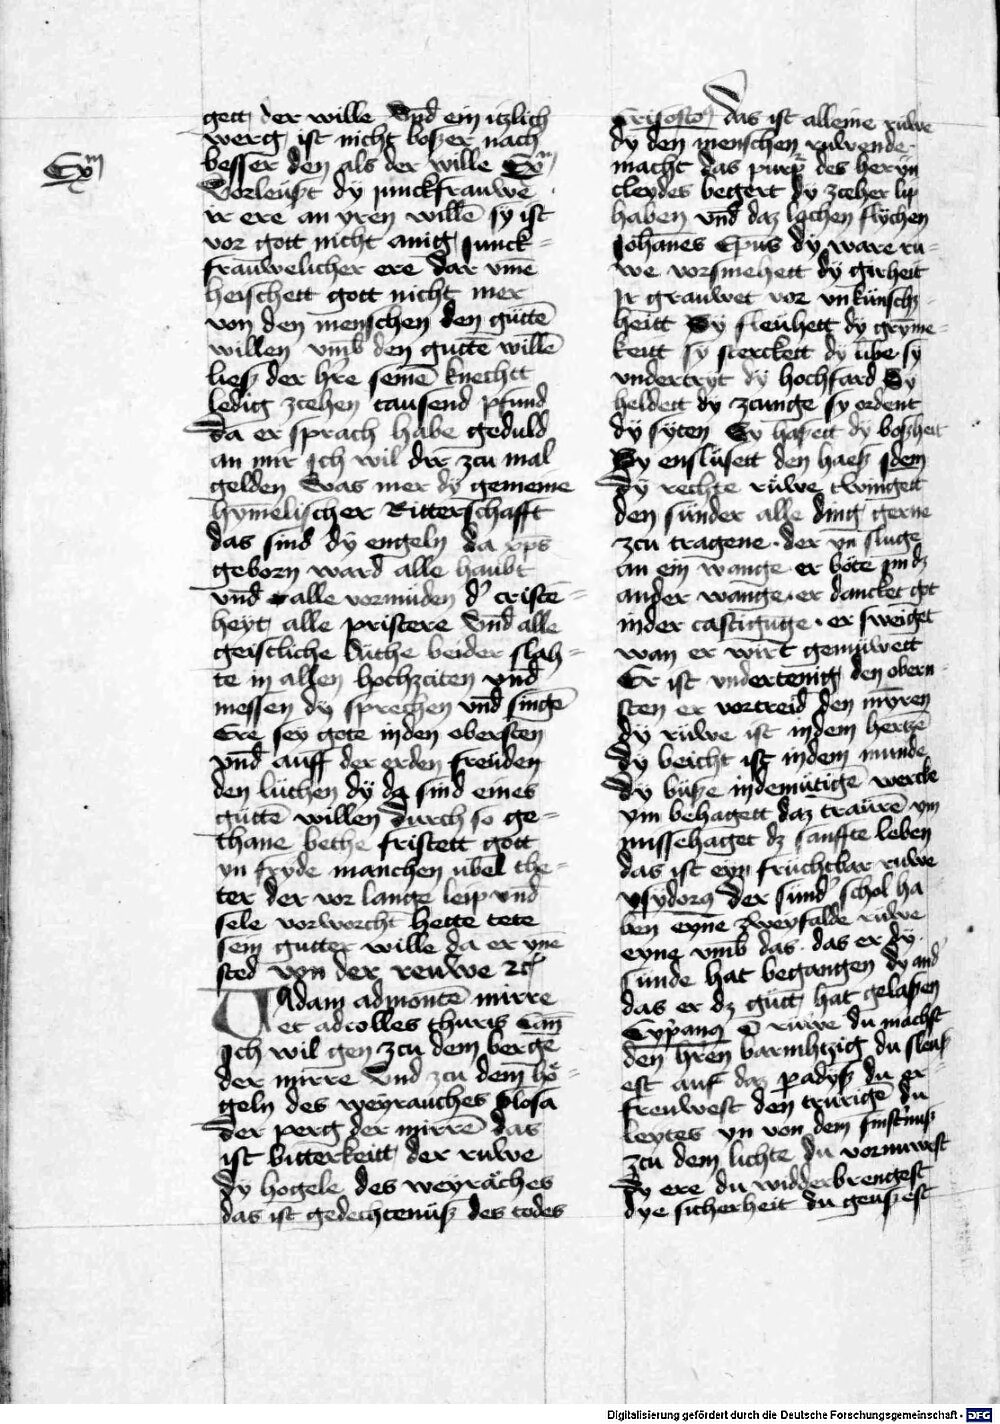 Exm
gett der wille Vnd ein itzlich
werg ist nicht boßer nach
besser den als der wille Exm
Vorleußt dy junckfrauwē
ir ere an yren willē sy ist
vor gott nicht anig junck-
frauwelicher ere dar vmē
heischett gott nicht mer
von den menschen den guttē
willen vmb den guttē willē
ließ der hre seinē knechtt
ledig zcehen tausend pfund
da er sprach habe geduld
an mir Ich wil dir zcu mal
gelden Was mer dy gemeine
hymelischer Ritterschafft
das sind dy engeln da xps
geborn ward alle haubt
vnd alle vormuden d' cristē-
heyt alle pristere Vnd alle
geistliche luthe beider slah-
te in allen hochzciten vnd
messen dy sprechen vnd singē
Ere sey gote inden obersten
vnd auff der erden freuden
den luthen dy da sind eines
guttē willen Durch so ge-
thane bethe fristett gott
yn fryde manchen ubel the-
ter der vor lange leip vnd
sele vorworcht hette tete
sein gutter wille da er ynē
sted von der reuwe 2c
Vadam admontē mirre
et adcolles thuris Can
Ich wil gen zcu dem berge
der mirre Vnd zcu dem ho-
geln des weyrauches Glosa
Der perg der mirrē das
ist bitterkeitt der ruwe
Dy hogele des weyraches
das ist gedechtenuß des todes
Crisosto das ist alleine ruwe
dy den menschen ruwende
macht das purp des heryn
cleydes begert dy zceher lip
haben vnd daz lachen flychen
Johānes Epus dy ware ru-
we vorsmehett dy girheit
Ir grauwet vor vnkunsch-
heitt Sy fleuhett dy gryme-
keitt sy sterckett dy ube sy
vndertryt dy hochfard Sy
heldett dy zcunge sy ordent
dy syten Sy haßett dy boßheit
Sy enslusett den haeß Idem
Dy rechte ruwe twingett
den sunder alle ding gerne
zcu tragene. der yn sluge
an ein wange er bote im dz
ander wange. er dancket got
inder castigūge. er sweiget
wan er wirt gemuwett
Er ist vndertenig den obern-
sten er vortreid den myren
dy ruwe ist indem hertzē
Dy beicht ist indem munde
Dy buße indemutigē wercke
ym behagett daz traurē ym
missehaget dz sanffte leben
das ist eyn fruchtbar ruwe
ysydorꝯ Der sund' schol ha
ben eyne zweyfalde ruwe
eyne vmb das. das er dy
sunde hat begangen dy and'
das er dz gutt hat gelaßen
Cypanꝯ O ruwe du machst
den hren barmhtzig du sleuß
est auf daz padyß du er-
freuwest den trurigē du
leytes yn von dem finst'nuß
zcu dem lichte du vornuwest
Dy ere du widderbrengest
dye sicherheit du geußest
Digitalisierung gefördert durch die Deutsche Forschungsgemeinschaft - DFG